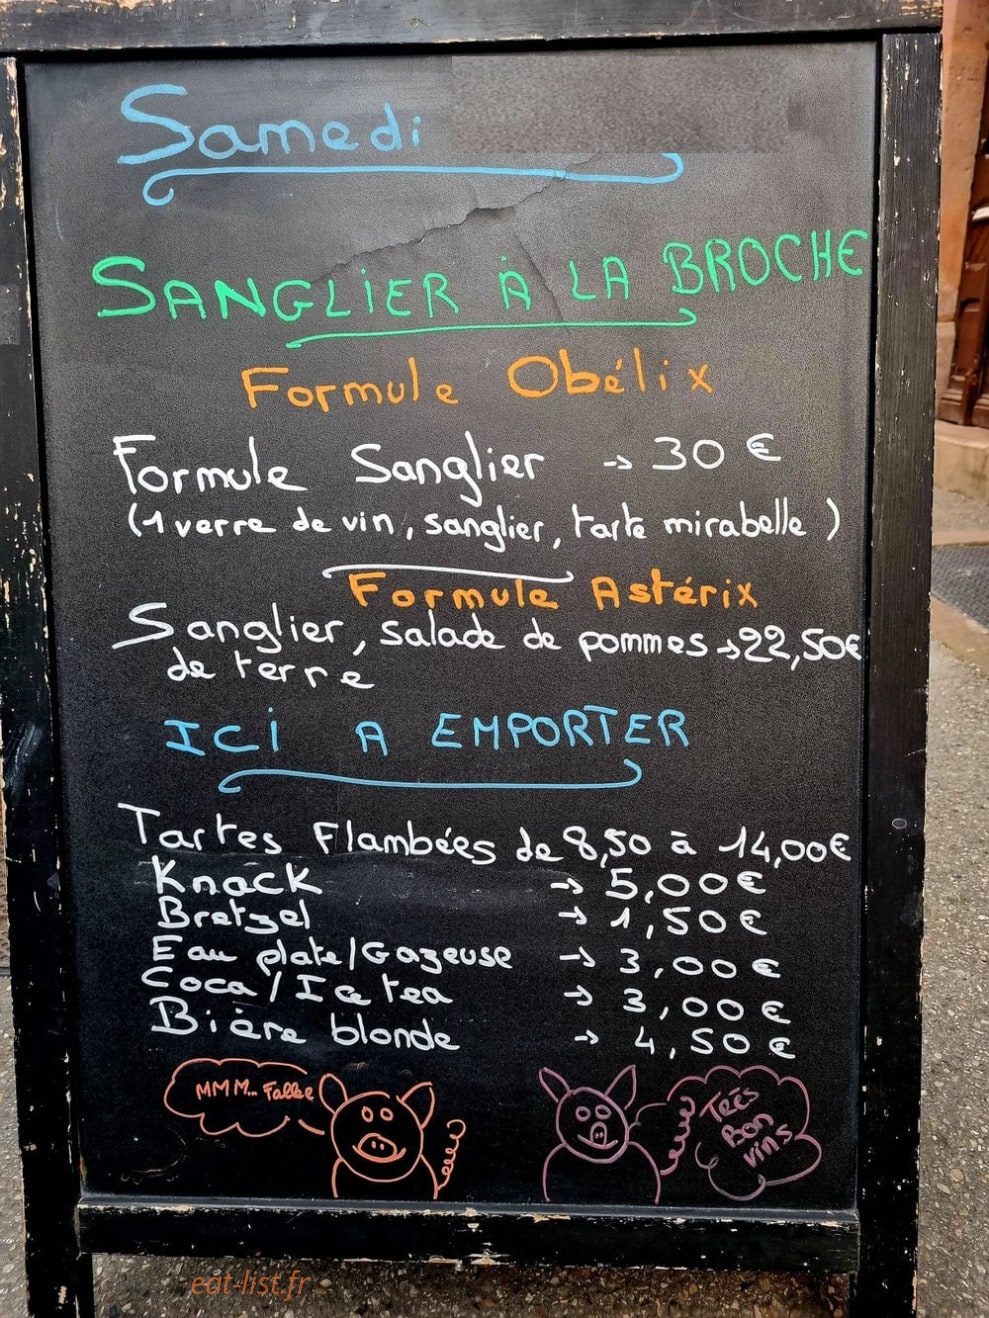 Samedi
SANGLIER À LA BROCHE
Formule Obélix
Formule Sanglier → 30 €
(1 verre de vin, sanglier, tarte mirabelle)
Formule Astérix
Sanglier, salade de pommes → 22,50€
de terre
ICI A EMPORTER
Tartes Flambées de 8,50 à 14,00€
Knack → 5,00€
Bretzel → 1,50€
Eau plate/Gazeuse → 3,00€
Coca/Ice tea → 3,00€
Bière blonde → 4,50€
MMM...
TRÈS
BON
vins
eat-list.fr